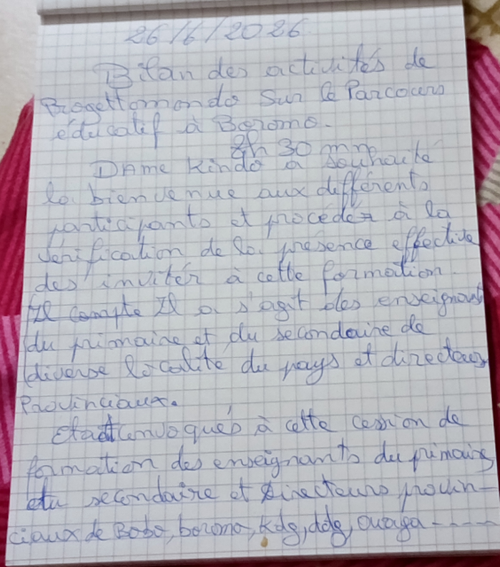 26/6/2026
Bilan des activités de
Progettomondo sur le Parcours
éducatif à Boromo.
8h 30 mn
Dame Kindo a souhaité
la bienvenue aux différents
participants et procéder à la
vérification de la présence effective
des invités à cette formation.
Il compte Il a s'agit des enseignants
du primaire et du secondaire de
diverse localite du pays et directeurs
Provinciaux.
Etait convoqués à cette cession de
formation des enseignants du primaire
du secondaire et Directeurs provin-
ciaux de Bobo, boromo, Kdg, ddg, ouaga-----